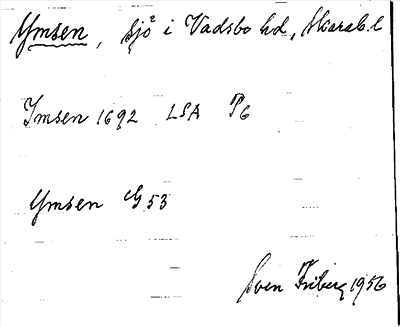 Ymsen, sjö i Vadsbo hd, Skarab. l
Ymsen 1692 LSA P6
Ymsen G 53
Sven Friberg 1956